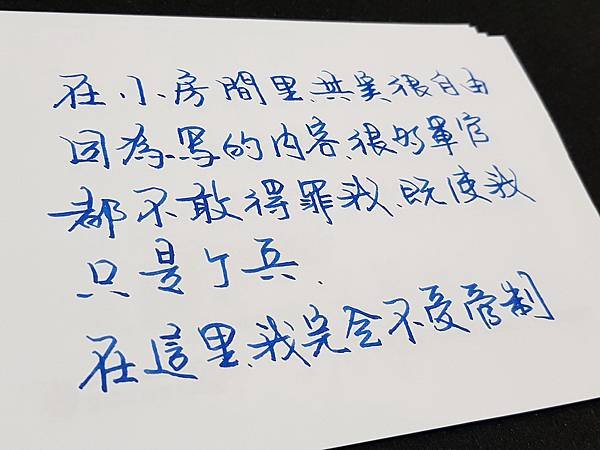 在小房間里、其实很自由
因為写的内容、很多軍官
都不敢得罪我、既使我
只是个兵、
在這里、我完全不受管制